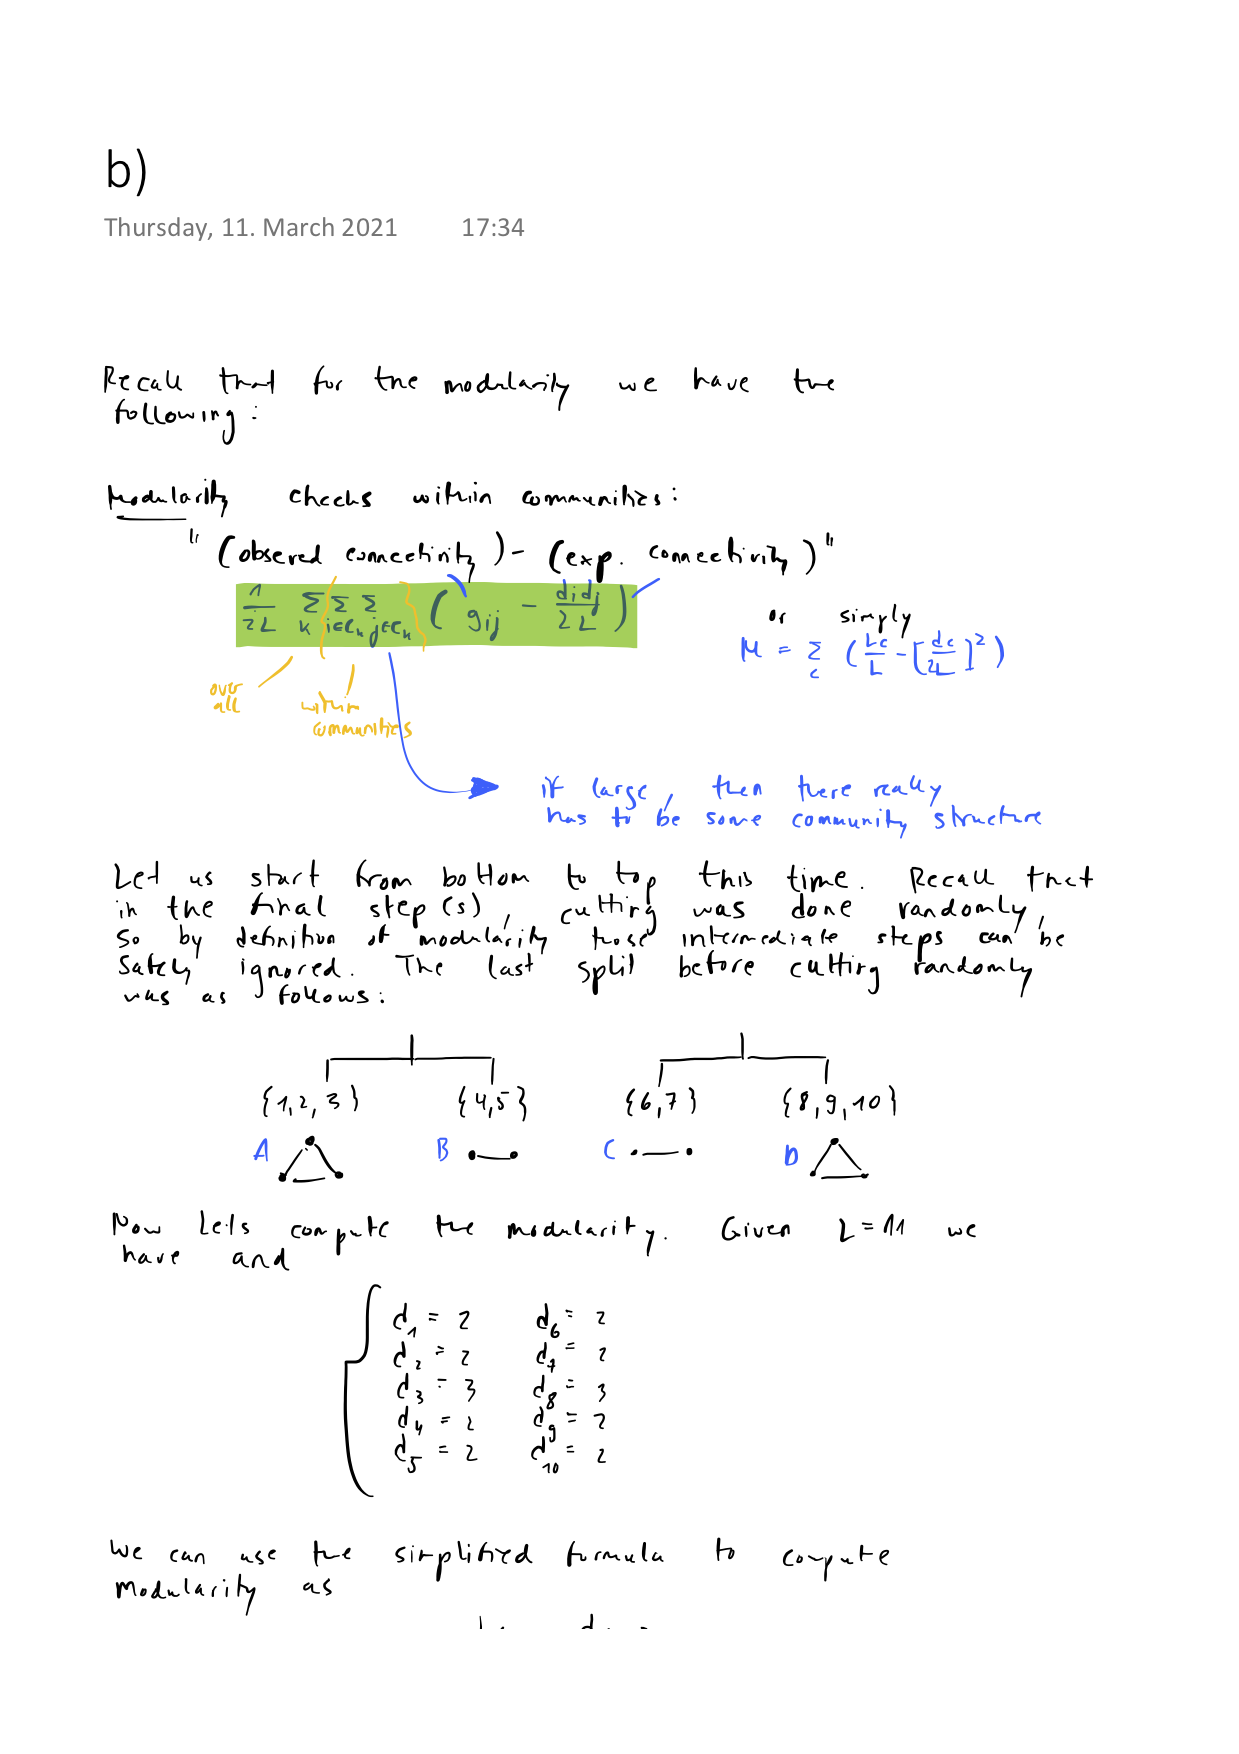 b)
Thursday, 11. March 2021 17:34
Recall that for the modularity we have the
following:
Modularity checks within communities:
"(obsered connectivity) - (exp. connectivity)"
1/2L Σ_k Σ_{i∈C_k} Σ_{j∈C_k} ( g_ij - d_i d_j / 2L )
or simply
M = Σ_c ( L_c/L - [ d_c/2L ]² )
over
all
within
communities
if large, then there really
has to be some community structure
Let us start from bottom to top this time. Recall that
in the final step(s), cutting was done randomly,
so by definition of modularity those intermediate steps can be
safely ignored. The last split before cutting randomly
was as follows:
{1,2,3} {4,5} {6,7} {8,9,10}
A B C D
Now let's compute the modularity. Given L = 11 we
have and
d_1 = 2 d_6 = 2
d_2 = 2 d_7 = 2
d_3 = 3 d_8 = 3
d_4 = 2 d_9 = 2
d_5 = 2 d_10 = 2
We can use the simplified formula to compute
modularity as